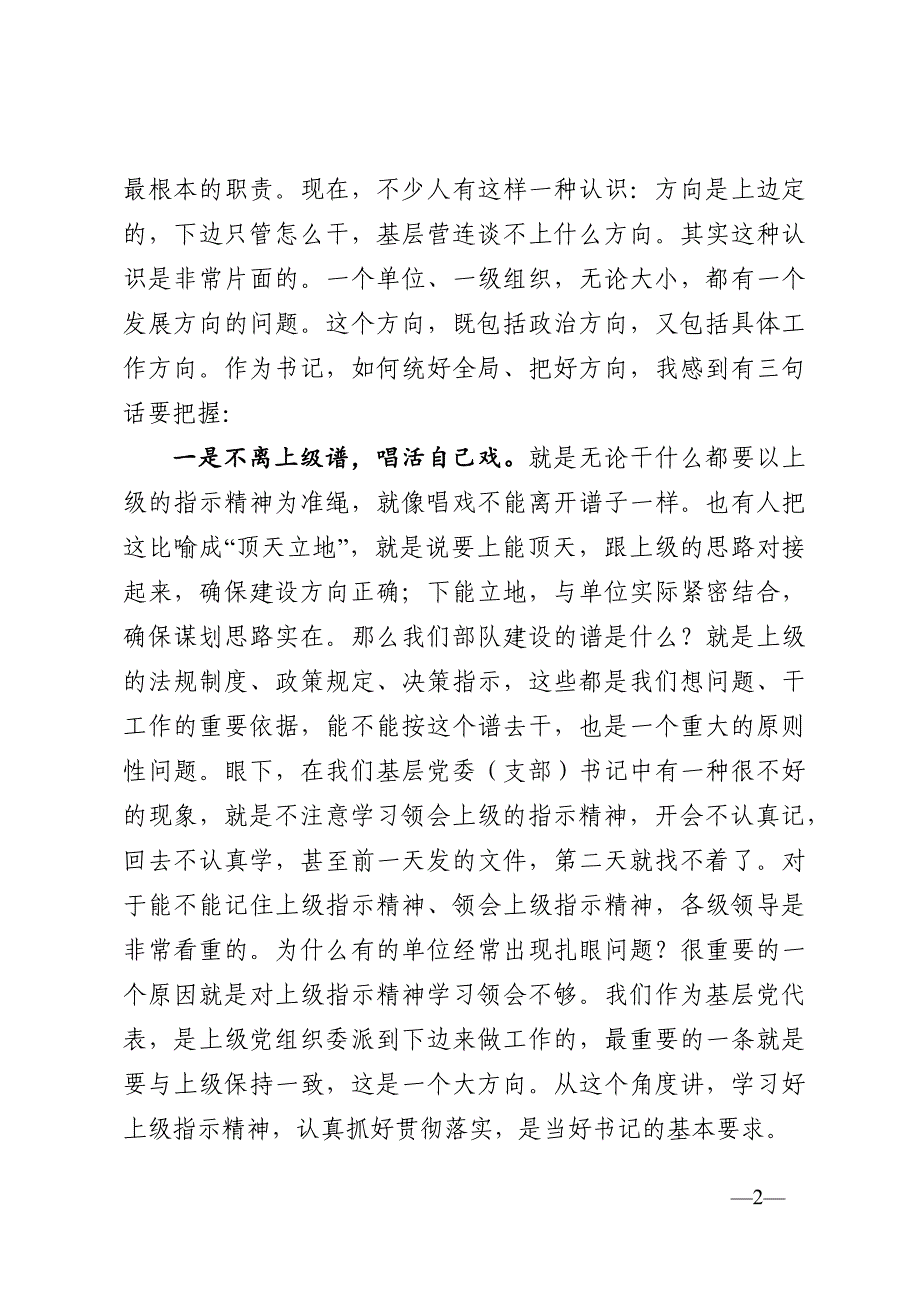 最根本的职责。现在，不少人有这样一种认识：方向是上边定
的，下边只管怎么干，基层营连谈不上什么方向。其实这种认
识是非常片面的。一个单位、一级组织，无论大小，都有一个
发展方向的问题。这个方向，既包括政治方向，又包括具体工
作方向。作为书记，如何统好全局、把好方向，我感到有三句
话要把握：
一是不离上级谱，唱活自己戏。就是无论干什么都要以上
级的指示精神为准绳，就像唱戏不能离开谱子一样。也有人把
这比喻成“顶天立地”，就是说要上能顶天，跟上级的思路对接
起来，确保建设方向正确；下能立地，与单位实际紧密结合，
确保谋划思路实在。那么我们部队建设的谱是什么？就是上级
的法规制度、政策规定、决策指示，这些都是我们想问题、干
工作的重要依据，能不能按这个谱去干，也是一个重大的原则
性问题。眼下，在我们基层党委（支部）书记中有一种很不好
的现象，就是不注意学习领会上级的指示精神，开会不认真记，
回去不认真学，甚至前一天发的文件，第二天就找不着了。对
于能不能记住上级指示精神、领会上级指示精神，各级领导是
非常看重的。为什么有的单位经常出现扎眼问题？很重要的一
个原因就是对上级指示精神学习领会不够。我们作为基层党代
表，是上级党组织委派到下边来做工作的，最重要的一条就是
要与上级保持一致，这是一个大方向。从这个角度讲，学习好
上级指示精神，认真抓好贯彻落实，是当好书记的基本要求。
—2—